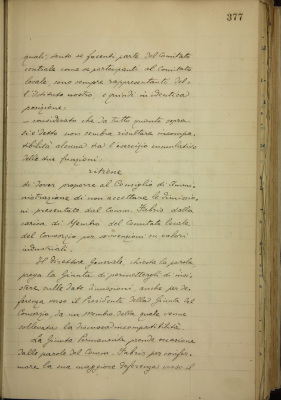 377
quali, tanto se facenti parte del Comitato
centrale come se partecipanti al Comitato
locale, sono sempre rappresentanti del-
l'Istituto nostro, e quindi in identica
posizione;
- considerato che da tutto quanto sopra
si è detto non sembra risultare incompa-
tibilità alcuna tra l'esercizio cumulativo
delle due funzioni;
ritiene
di dover proporre al Consiglio di Ammi-
nistrazione di non accettare le dimissio-
ni presentate dal Comm. Fabris dalla
carica di Membro del Comitato locale
del Consorzio per sovvenzioni su valori
industriali.
Il Direttore Generale, chiesta la parola
prega la Giunta di permettergli di insi-
stere sulle date dimissioni, anche per de-
ferenza verso il Presidente della Giunta del
Consorzio, da un membro della quale venne
sollevata la discussa incompatibilità.
La Giunta Permanente prende occasione
dalle parole del Comm. Fabris per confer-
mare la sua maggiore deferenza verso il